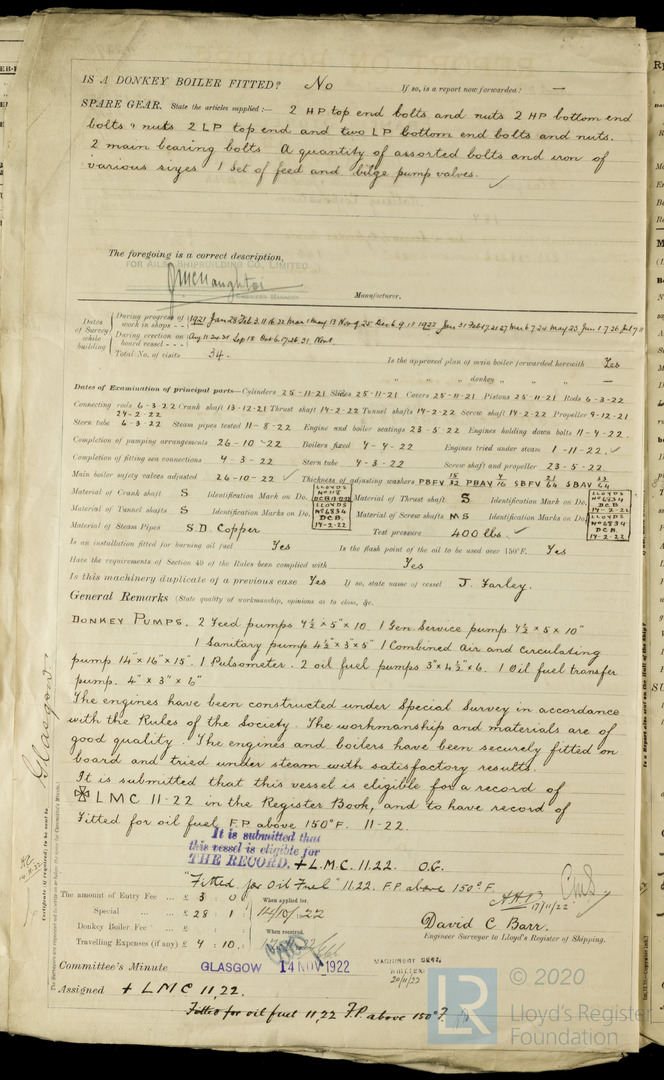 IS A DONKEY BOILER FITTED? No If so, is a report now forwarded: —
SPARE GEAR. State the articles supplied:— 2 HP top end bolts and nuts 2 HP bottom end
bolts & nuts 2 LP top end and two LP bottom end bolts and nuts.
2 main bearing bolts A quantity of assorted bolts and iron of
various sizes 1 Set of feed and bilge pump valves.
The foregoing is a correct description,
FOR AILSA SHIPBUILDING CO., LIMITED
ENGINEER MANAGER Manufacturer.
Dates of Survey while building
During progress of work in shops - - 1921 Jan 28 Feb 3.11.16.22 Mar 1 May 13 Nov 9.25 Dec 6.9.13 1922 Jan 31 Feb 17.21.27 Mar 6.7.24 May 23 Jun 1.7.26 Jul 7.11
During erection on board vessel - - Aug 11.24.31 Sep 18 Oct 6.17.26.31 Nov 1
Total No. of visits 34.
Is the approved plan of main boiler forwarded herewith Yes
" " " donkey " " " —
Dates of Examination of principal parts—Cylinders 25-11-21 Slides 25-11-21 Covers 25-11-21 Pistons 25-11-21 Rods 6-3-22
Connecting rods 6-3-22 Crank shaft 13-12-21 Thrust shaft 14-2-22 Tunnel shafts 14-2-22 Screw shaft 14-2-22 Propeller 9-12-21
24-2-22
Stern tube 6-3-22 Steam pipes tested 11-8-22 Engine and boiler seatings 23-5-22 Engines holding down bolts 11-9-22.
Completion of pumping arrangements 26-10-22 Boilers fixed 4-9-22 Engines tried under steam 1-11-22.
Completion of fitting sea connections 4-3-22 Stern tube 4-3-22 Screw shaft and propeller 23-5-22
Main boiler safety valves adjusted 26-10-22 Thickness of adjusting washers PBFV 15/32 PBAV 7/16 SBFV 21/64 SBAV 23/64
Material of Crank shaft S Identification Mark on Do. LLOYDS No 118 DCB Material of Thrust shaft S Identification Mark on Do. LLOYDS No 6834 DCB 14-2-22
Material of Tunnel shafts S Identification Marks on Do. LLOYDS No 6834 DCB 14-2-22 Material of Screw shafts MS Identification Marks on Do. LLOYDS No 6834 DCB 14-2-22
Material of Steam Pipes S.D. Copper Test pressure 400 lbs.
Is an installation fitted for burning oil fuel Yes Is the flash point of the oil to be used over 150°F. Yes
Have the requirements of Section 49 of the Rules been complied with Yes
Is this machinery duplicate of a previous case Yes If so, state name of vessel J. Farley.
General Remarks (State quality of workmanship, opinions as to class, &c.
DONKEY PUMPS. 2 Feed pumps 7½ x 5" x 10 1 Gen. Service pump 7½ x 5 x 10"
1 Sanitary pump 4½ x 3" x 5" 1 Combined Air and Circulating
pump 14" x 16" x 15". 1 Pulsometer. 2 oil fuel pumps 3" x 4½" x 6. 1 Oil fuel transfer
pump. 4" x 3" x 6"
The engines have been constructed under Special Survey in accordance
with the Rules of the Society. The workmanship and materials are of
good quality. The engines and boilers have been securely fitted on
board and tried under steam with satisfactory results.
It is submitted that this vessel is eligible for a record of
✠ LMC 11-22 in the Register Book, and to have record of
Fitted for oil fuel F.P. above 150°F. 11-22.
It is submitted that
this vessel is eligible for
THE RECORD. + L.M.C. 11.22. O.G.
"Fitted for Oil Fuel" 11.22. F.P. above 150°F.
17/11/22
The amount of Entry Fee ... £ 3 : 0 When applied for,
Special ... £ 28 : 1
Donkey Boiler Fee ... £ When received,
Travelling Expenses (if any) £ 4 : 10
David C Barr.
Engineer Surveyor to Lloyd's Register of Shipping.
Committee's Minute GLASGOW 14 NOV 1922
MACHINERY CERT. WRITTEN 20/11/22
Assigned + LMC 11,22.
Fitted for oil fuel 11,22 F.P. above 150°F.
Glasgow
© 2020
Lloyd's Register
Foundation
LR